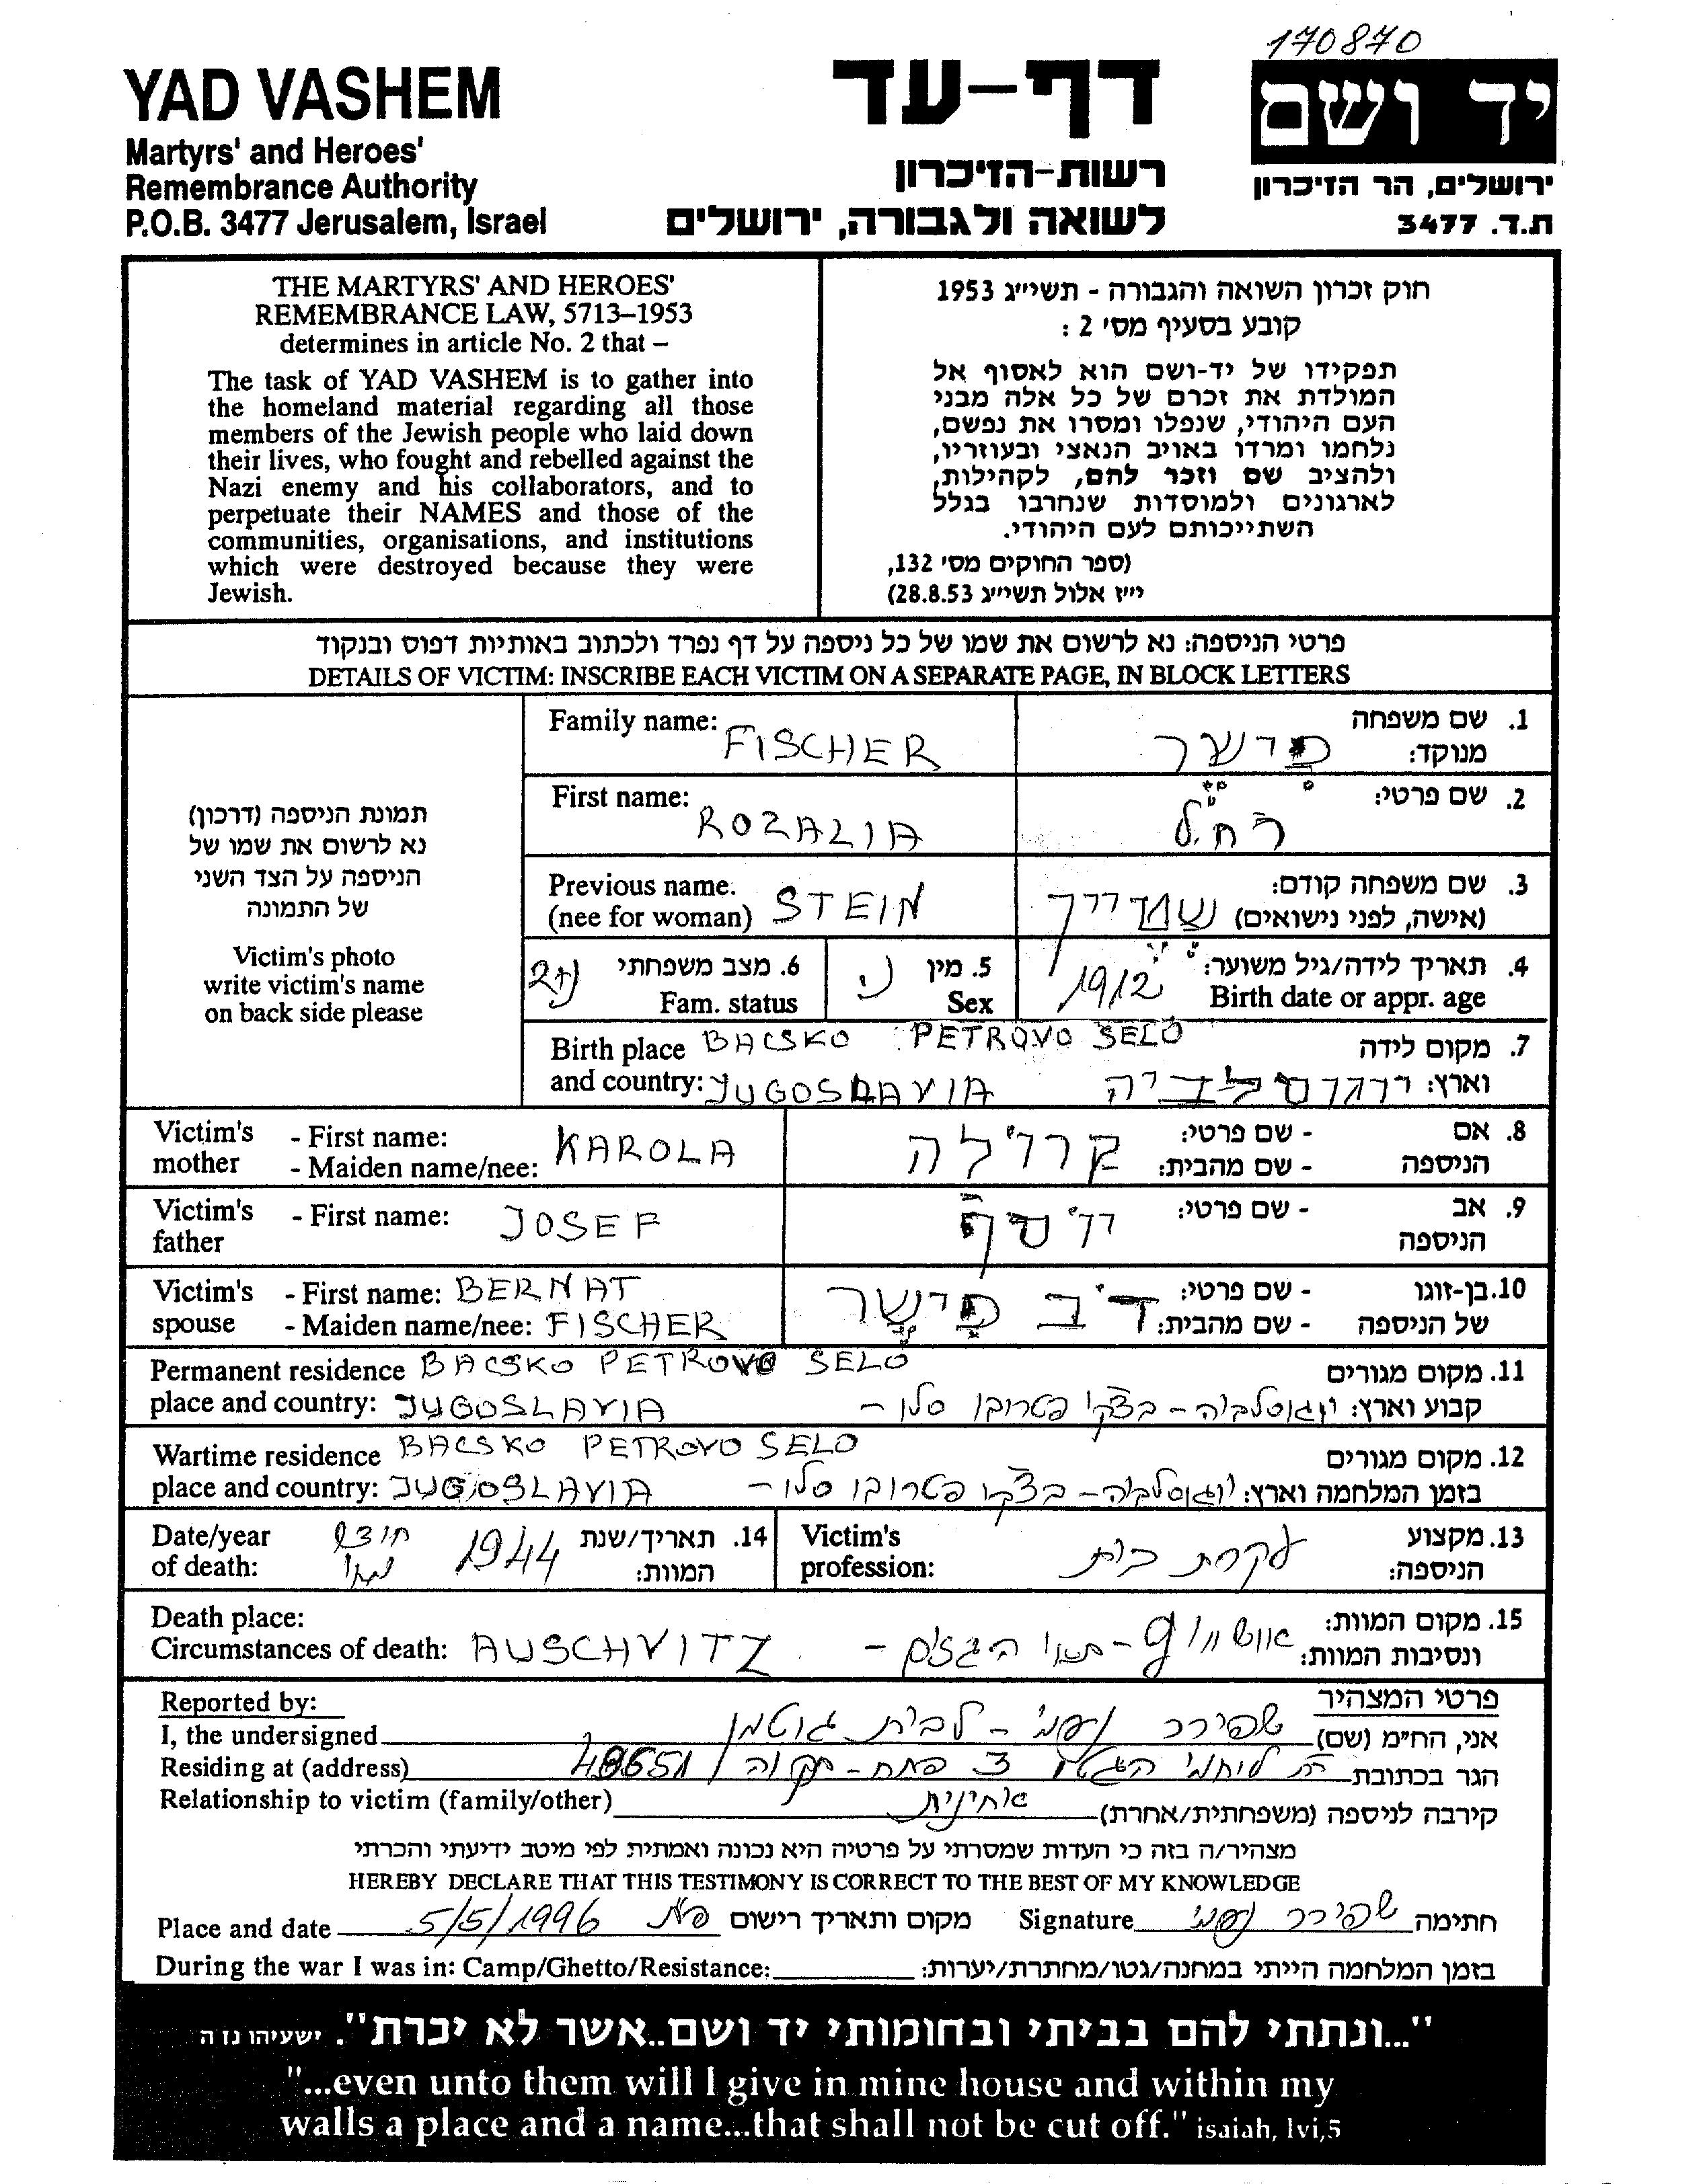 170870
YAD VASHEM
Martyrs' and Heroes'
Remembrance Authority
P.O.B. 3477 Jerusalem, Israel
דף-עד
רשות-הזיכרון
לשואה ולגבורה, ירושלים
יד ושם
ירושלים, הר הזיכרון
ת.ד. 3477
THE MARTYRS' AND HEROES'
REMEMBRANCE LAW, 5713–1953
determines in article No. 2 that –
The task of YAD VASHEM is to gather into
the homeland material regarding all those
members of the Jewish people who laid down
their lives, who fought and rebelled against the
Nazi enemy and his collaborators, and to
perpetuate their NAMES and those of the
communities, organisations, and institutions
which were destroyed because they were
Jewish.
חוק זכרון השואה והגבורה - תשי״ג 1953
קובע בסעיף מס׳ 2 :
תפקידו של יד-ושם הוא לאסוף אל
המולדת את זכרם של כל אלה מבני
העם היהודי, שנפלו ומסרו את נפשם,
נלחמו ומרדו באויב הנאצי ובעוזריו,
ולהציב שם וזכר להם, לקהילות,
לארגונים ולמוסדות שנחרבו בגלל
השתייכותם לעם היהודי.
(ספר החוקים מס׳ 132,
י״ז אלול תשי״ג 28.8.53)
פרטי הניספה: נא לרשום את שמו של כל ניספה על דף נפרד ולכתוב באותיות דפוס ובנקוד
DETAILS OF VICTIM: INSCRIBE EACH VICTIM ON A SEPARATE PAGE, IN BLOCK LETTERS
תמונת הניספה (דרכון)
נא לרשום את שמו של
הניספה על הצד השני
של התמונה
Victim's photo
write victim's name
on back side please
Family name: FISCHER
1. שם משפחה
מנוקד: פישר
First name: ROZALIA
2. שם פרטי: רחל
Previous name.
(nee for woman) STEIN
3. שם משפחה קודם:
(אישה, לפני נישואים) שטיין
4. תאריך לידה/גיל משוער:
Birth date or appr. age 1912
5. מין
Sex נ.
6. מצב משפחתי
Fam. status נ+2
Birth place BACSKO PETROVO SELO
and country: JUGOSLAVIA
7. מקום לידה
וארץ: יוגוסלביה
Victim's mother - First name: KAROLA
- Maiden name/nee:
8. אם הניספה - שם פרטי: קרולה
- שם מהבית:
Victim's father - First name: JOSEF
9. אב הניספה - שם פרטי: יוסף
Victim's spouse - First name: BERNAT
- Maiden name/nee: FISCHER
10. בן-זוגו של הניספה - שם פרטי:
- שם מהבית: דב פישר
Permanent residence BACSKO PETROVO SELO
place and country: JUGOSLAVIA
11. מקום מגורים
קבוע וארץ: יוגוסלביה - בצקו פטרובו סלו -
Wartime residence BACSKO PETROVO SELO
place and country: JUGOSLAVIA
12. מקום מגורים
בזמן המלחמה וארץ: יוגוסלביה - בצקו פטרובו סלו -
Date/year
of death:
חודש
מאי
1944
14. תאריך/שנת
המוות:
Victim's
profession:
13. מקצוע
הניספה: עקרת בית
Death place:
Circumstances of death: AUSCHVITZ
15. מקום המוות:
ונסיבות המוות: אושוויץ - תאי הגזים -
Reported by:
פרטי המצהיר
I, the undersigned
אני, הח״מ (שם) שפירר נעמי - לבית גוטמן
Residing at (address)
הגר בכתובת רח׳ לוחמי הגטו 3 פתח-תקוה 49651
Relationship to victim (family/other)
קירבה לניספה (משפחתית/אחרת) אחינית
מצהיר/ה בזה כי העדות שמסרתי על פרטיה היא נכונה ואמתית לפי מיטב ידיעתי והכרתי
HEREBY DECLARE THAT THIS TESTIMONY IS CORRECT TO THE BEST OF MY KNOWLEDGE
Place and date 5/5/1996 מקום ותאריך רישום
Signature שפירר נעמי חתימה
During the war I was in: Camp/Ghetto/Resistance:
בזמן המלחמה הייתי במחנה/גטו/מחתרת/יערות:
"...ונתתי להם בביתי ובחומותי יד ושם..אשר לא יכרת". ישעיהו נו ה
"...even unto them will I give in mine house and within my
walls a place and a name...that shall not be cut off." isaiah, lvi,5